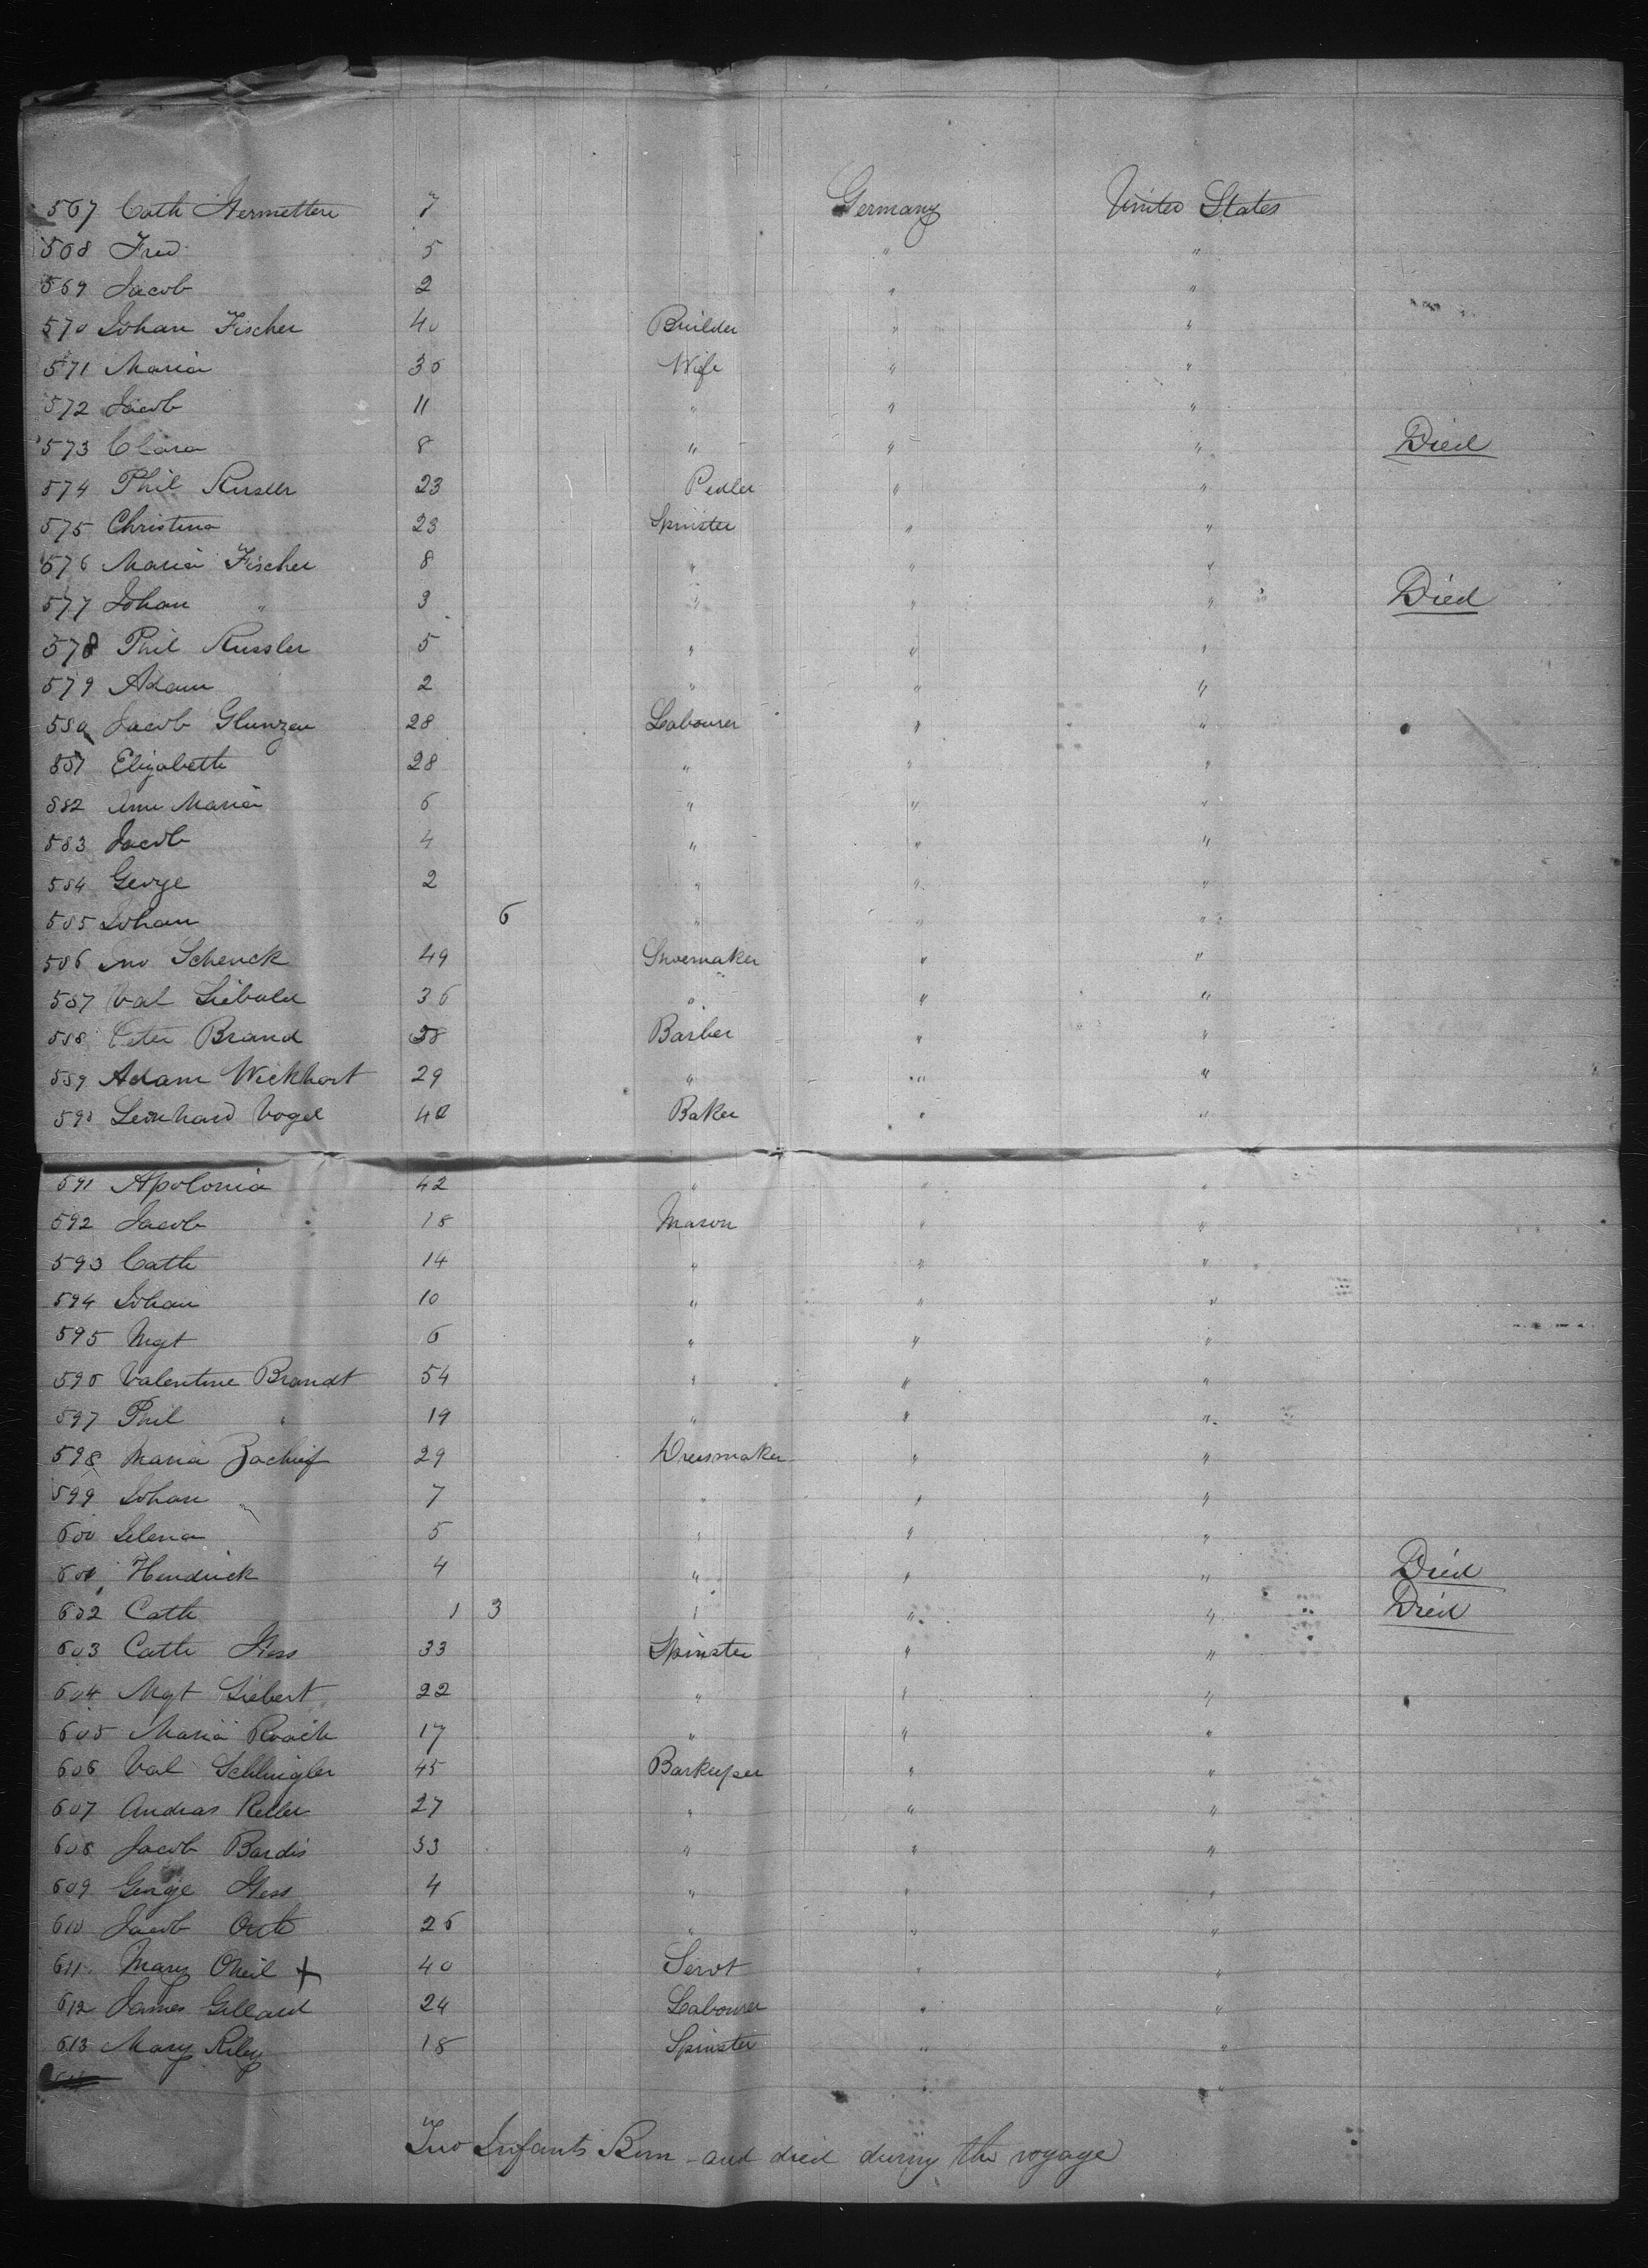 567 Cath Hermetten 7 Germany United States
568 Fred 5 " "
569 Jacob 2 " "
570 Johan Fischer 40 Builder " "
571 Maria 36 Wife " "
572 Jacob 11 " " "
573 Clara 8 " " " Died
574 Phil Russler 23 Pedler " "
575 Christina 23 Spinster " "
576 Maria Fischer 8 " " "
577 Johan " 3 " " " Died
578 Phil Russler 5 " " "
579 Adam 2 " " "
580 Jacob Glunzen 28 Labourer " "
581 Elizabeth 28 " " "
582 Ann Maria 6 " " "
583 Jacob 4 " " "
584 George 2 " " "
585 Johan 6 " " "
586 Jno Schenck 49 Shoemaker " "
587 Val Siebald 36 " " "
588 Peter Brand 38 Barber " "
589 Adam Wickhort 29 " " "
590 Leonhard Vogel 42 Baker " "
591 Apolonia 42 " " "
592 Jacob 18 Mason " "
593 Cath 14 " " "
594 Johan 10 " " "
595 Mgt 6 " " "
596 Valentine Brandt 54 " " "
597 Phil " 19 " " "
598 Maria 29 Dressmaker " "
599 Johan 7 " " "
600 Lelena 5 " " "
601 Hendrick 4 " " " Died
602 Cath 1 3 " " " Died
603 Cath Hess 33 Spinster " "
604 Mgt Siebert 22 " " "
605 Maria Roach 17 " " "
606 Val Schlingler 45 Barkeeper " "
607 Andras Keller 27 " " "
608 Jacob Bardis 33 " " "
609 George Hess 4 " " "
610 Jacob Orth 26 " " "
611 Mary ONeil + 40 Servt " "
612 James Gillard 24 Labourer " "
613 Mary Riley 18 Spinster " "
" "
Two Infants Born and died during the voyage